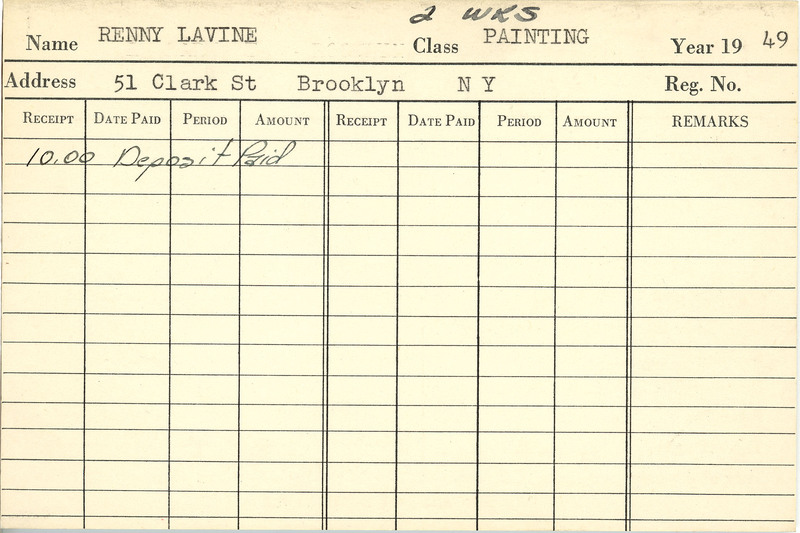 2 WKS
Name RENNY LAVINE Class PAINTING Year 19 49
Address 51 Clark St Brooklyn N Y Reg. No.
RECEIPT DATE PAID PERIOD AMOUNT RECEIPT DATE PAID PERIOD AMOUNT REMARKS
10.00 Deposit Paid